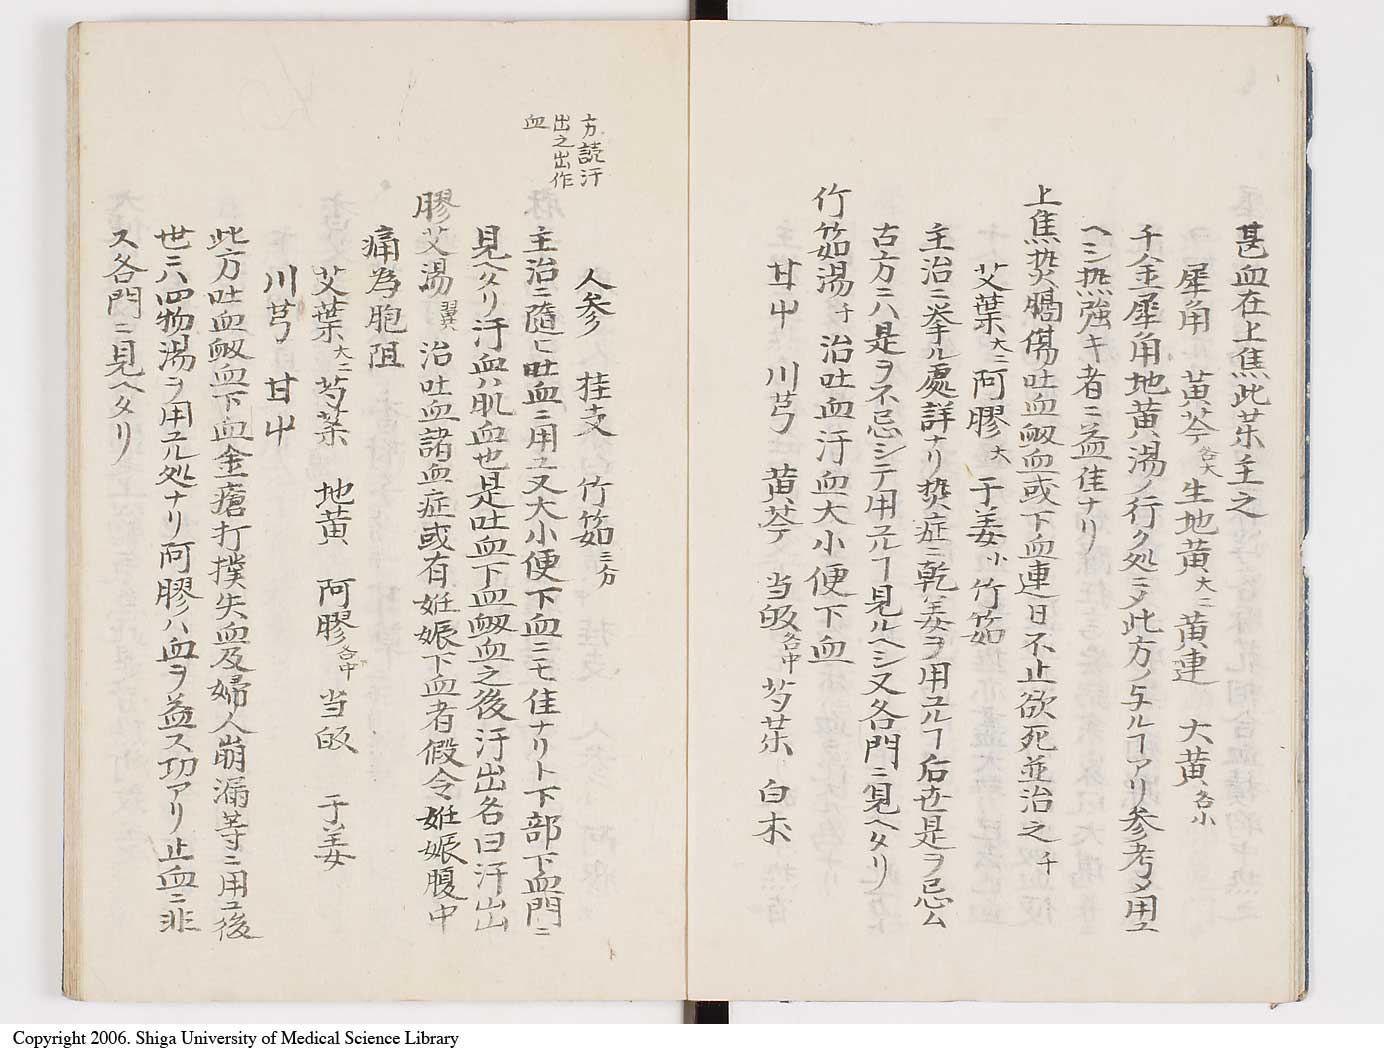 甚血在上焦此茱主之
犀角 黄芩各大生地黄大二黄連 大黄各小
千金犀角地黄湯ノ行ク処ニメ此方ノ与ルヿアリ参考メ用ユ
ヘシ热強キ者ニ益佳ナリ
上焦热膈傷吐血衂血或下血連日不止欲死並治之千
艾葉大二阿膠大干姜小竹筎
主治ニ挙ル處詳ナリ热症ニ乾姜ヲ用ユルヿ后世是ヲ忌ム
古方ニハ是ヲ不忌シテ用ユルヿ見ルヘシ又各門ニ見ヘタリ
竹筎湯千治吐血汗血大小便下血
甘屮 川芎 黄芩 当皈各中芍茱 白朮
人参 桂支 竹筎三分
主治ニ随ヒ吐血ニ用ユ又大小便下血ニモ佳ナリト下部下血門ニ
見ヘタリ汗血ハ肌血也是吐血下血衂血之後汗出各曰汗出
膠艾湯翼 治吐血諸血症或有妊娠下血者假令妊娠腹中
痛為胞阻
艾葉大二芍茱 地黄 阿膠各中当皈 干姜
川芎 甘屮
此方吐血衂血下血金瘡打撲失血及婦人崩漏等ニ用ユ後
世ニハ四物湯ヲ用ユル処ナリ阿膠ハ血ヲ益ス功アリ止血ニ非
ス各門ニ見ヘタリ
方読汗
出之出作
血
Copyright 2006. Shiga University of Medical Science Library